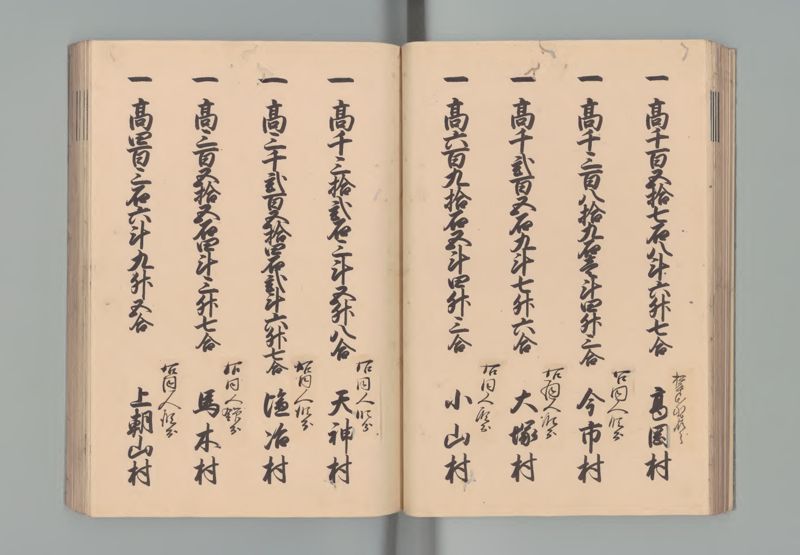 一 高千百五拾七石八斗六升七合 高岡村
一 高千三百八拾九石壱斗四升三合 今市村
右同人
一 高千弐百五石九斗七升六合 大塚村
右同人
一 高六百九拾石五斗四升三合 小山村
右同人
一 高千三拾弐石三斗五升八合 天神村
右同人
一 高三千弐百五拾四石弐斗六升七合 塩冶村
右同人
一 高三百五拾五石四斗三升七合 馬木村
右同人
一 高四百三石六斗九升五合 上朝山村
右同人